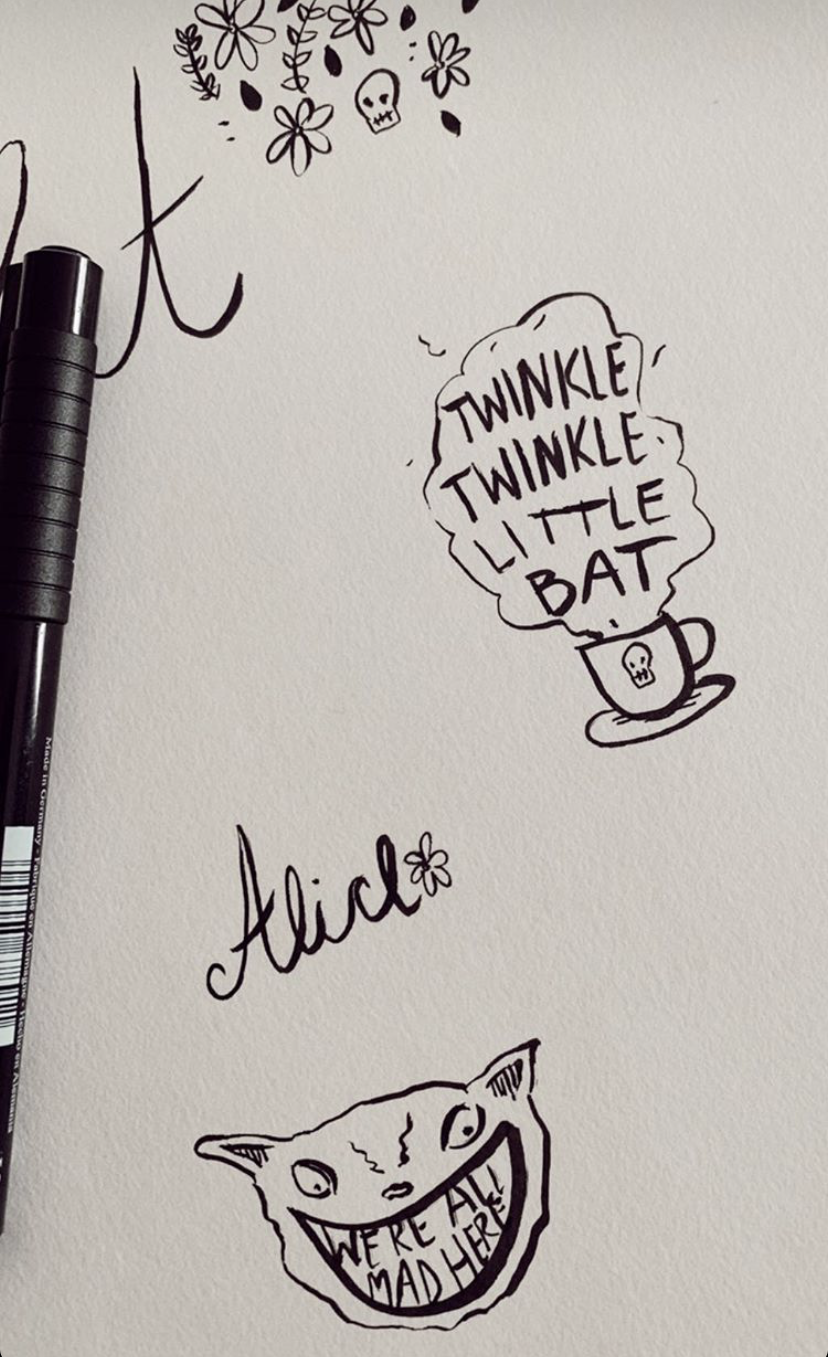 t
TWINKLE
TWINKLE
LITTLE
BAT
Alice
WE'RE ALL
MAD HERE
Made in Germany · Fabriqué en Allemagne · Hecho en Alemania